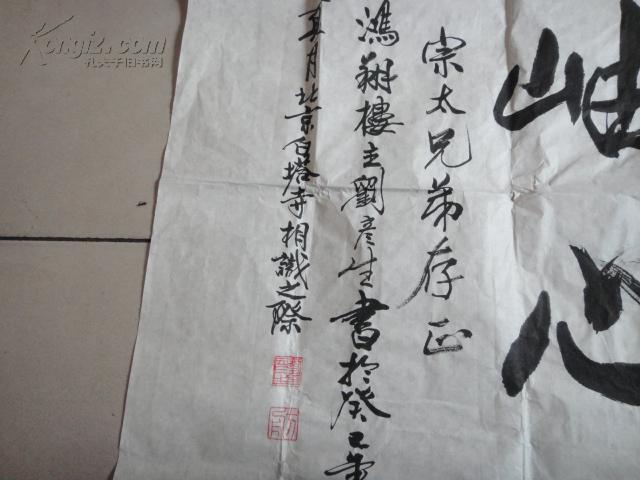 岫
心
宗太兄弟存正
鸿翔楼主劉彦生書於癸巳年
真月北京白塔寺相識之際
Kongfz.com
孔夫子旧书网